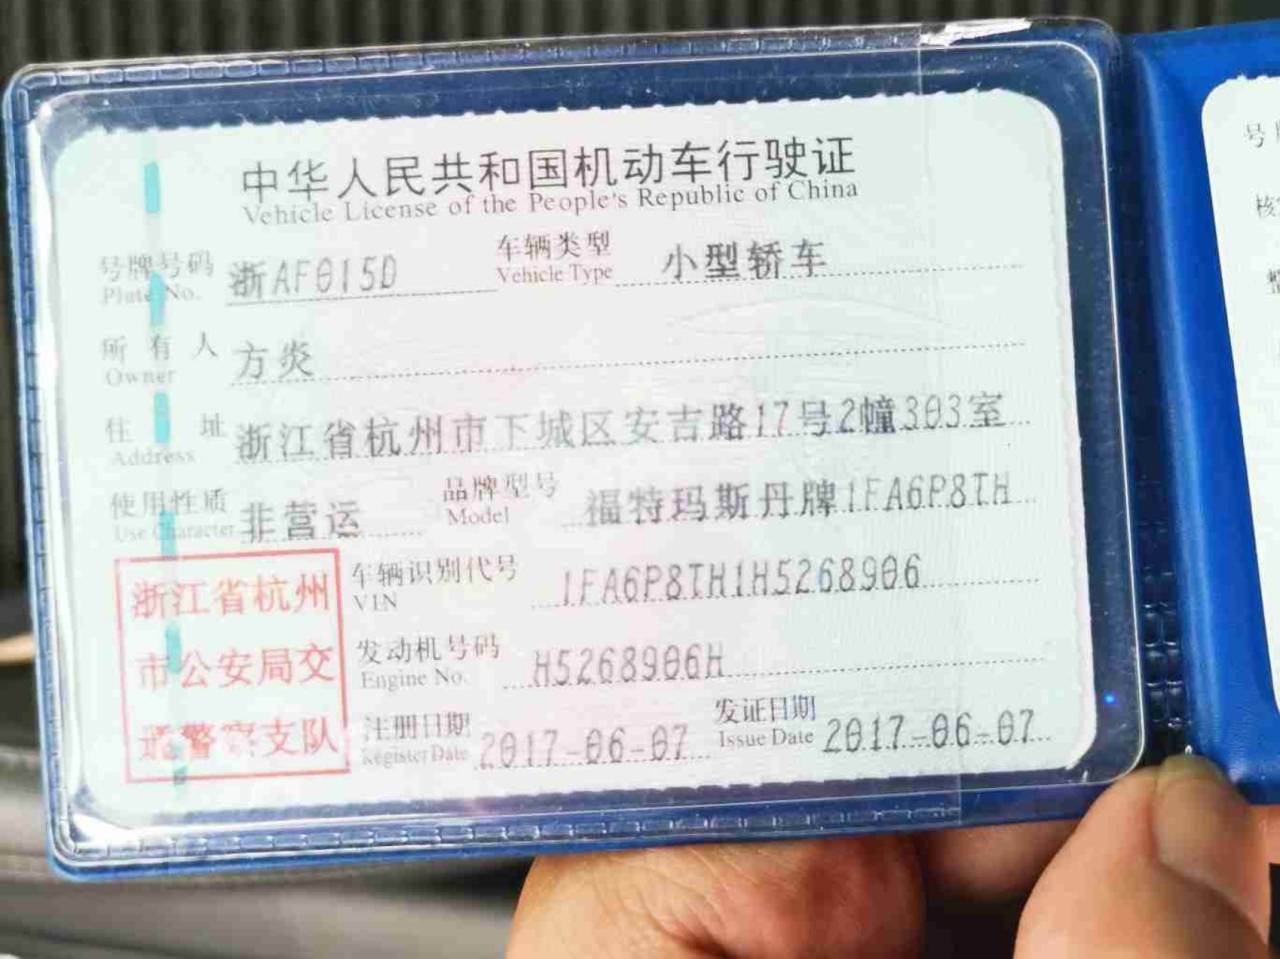 中华人民共和国机动车行驶证
Vehicle License of the People's Republic of China
号牌号码 浙AF015D 车辆类型 小型轿车
Plate No. Vehicle Type
所有人 方炎
Owner
住址 浙江省杭州市下城区安吉路17号2幢303室
Address
使用性质 非营运 品牌型号 福特玛斯丹牌1FA6P8TH
Use Character Model
车辆识别代号 1FA6P8TH1H5268906
VIN
发动机号码 H5268906H
Engine No.
注册日期 2017-06-07 发证日期 2017-06-07
Register Date Issue Date
浙江省杭州
市公安局交
通警察支队
号
核
整